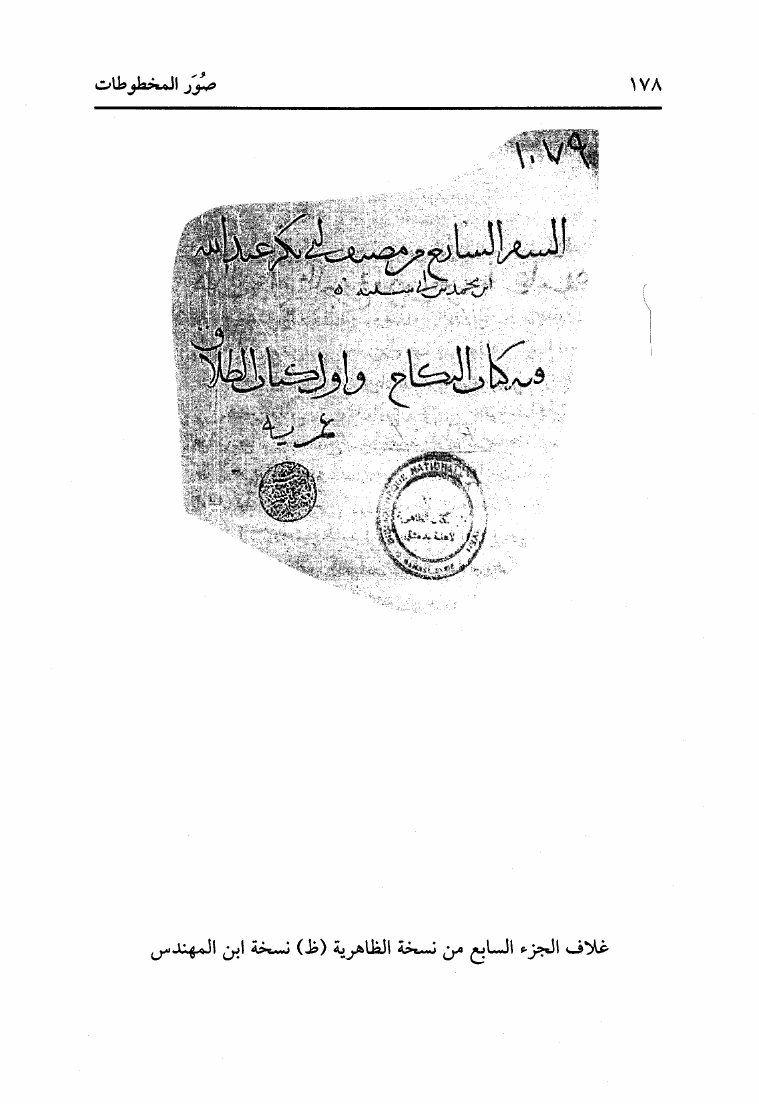 ١٧٨ صُوَر المخطوطات
١٠٧٩
السفر السابع من مصنف لابي بكر عبد الله
ابن محمد بن ابي شيبه
وفيه كتاب النكاح واول كتاب الطلاق
عمرية
NATIONALE
الظاهرية
بدمشق
غلاف الجزء السابع من نسخة الظاهرية (ظ) نسخة ابن المهندس